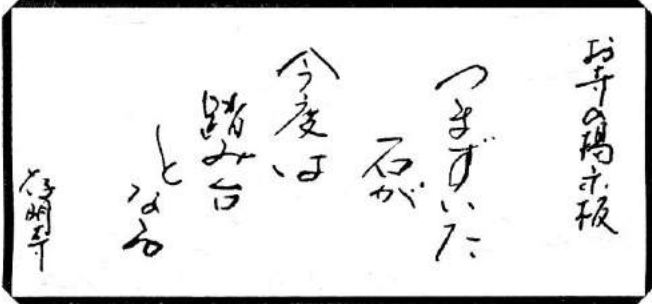 お寺の掲示板
つまずいた
石が
今度は
踏み台
となる
明寺